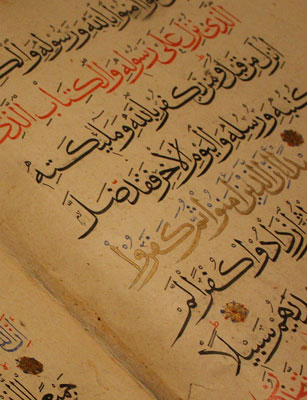 امنوا بالله ورسوله والك
الذي نزل على رسوله والكتاب الذي
انزل من قبل ومن يكفر بالله وملئكته
كتبه ورسله واليوم الاخر فقد ضل
ان الذين امنوا ثم كفروا
ازدادوا كفرا لم
يهم سبيلا
جميعا